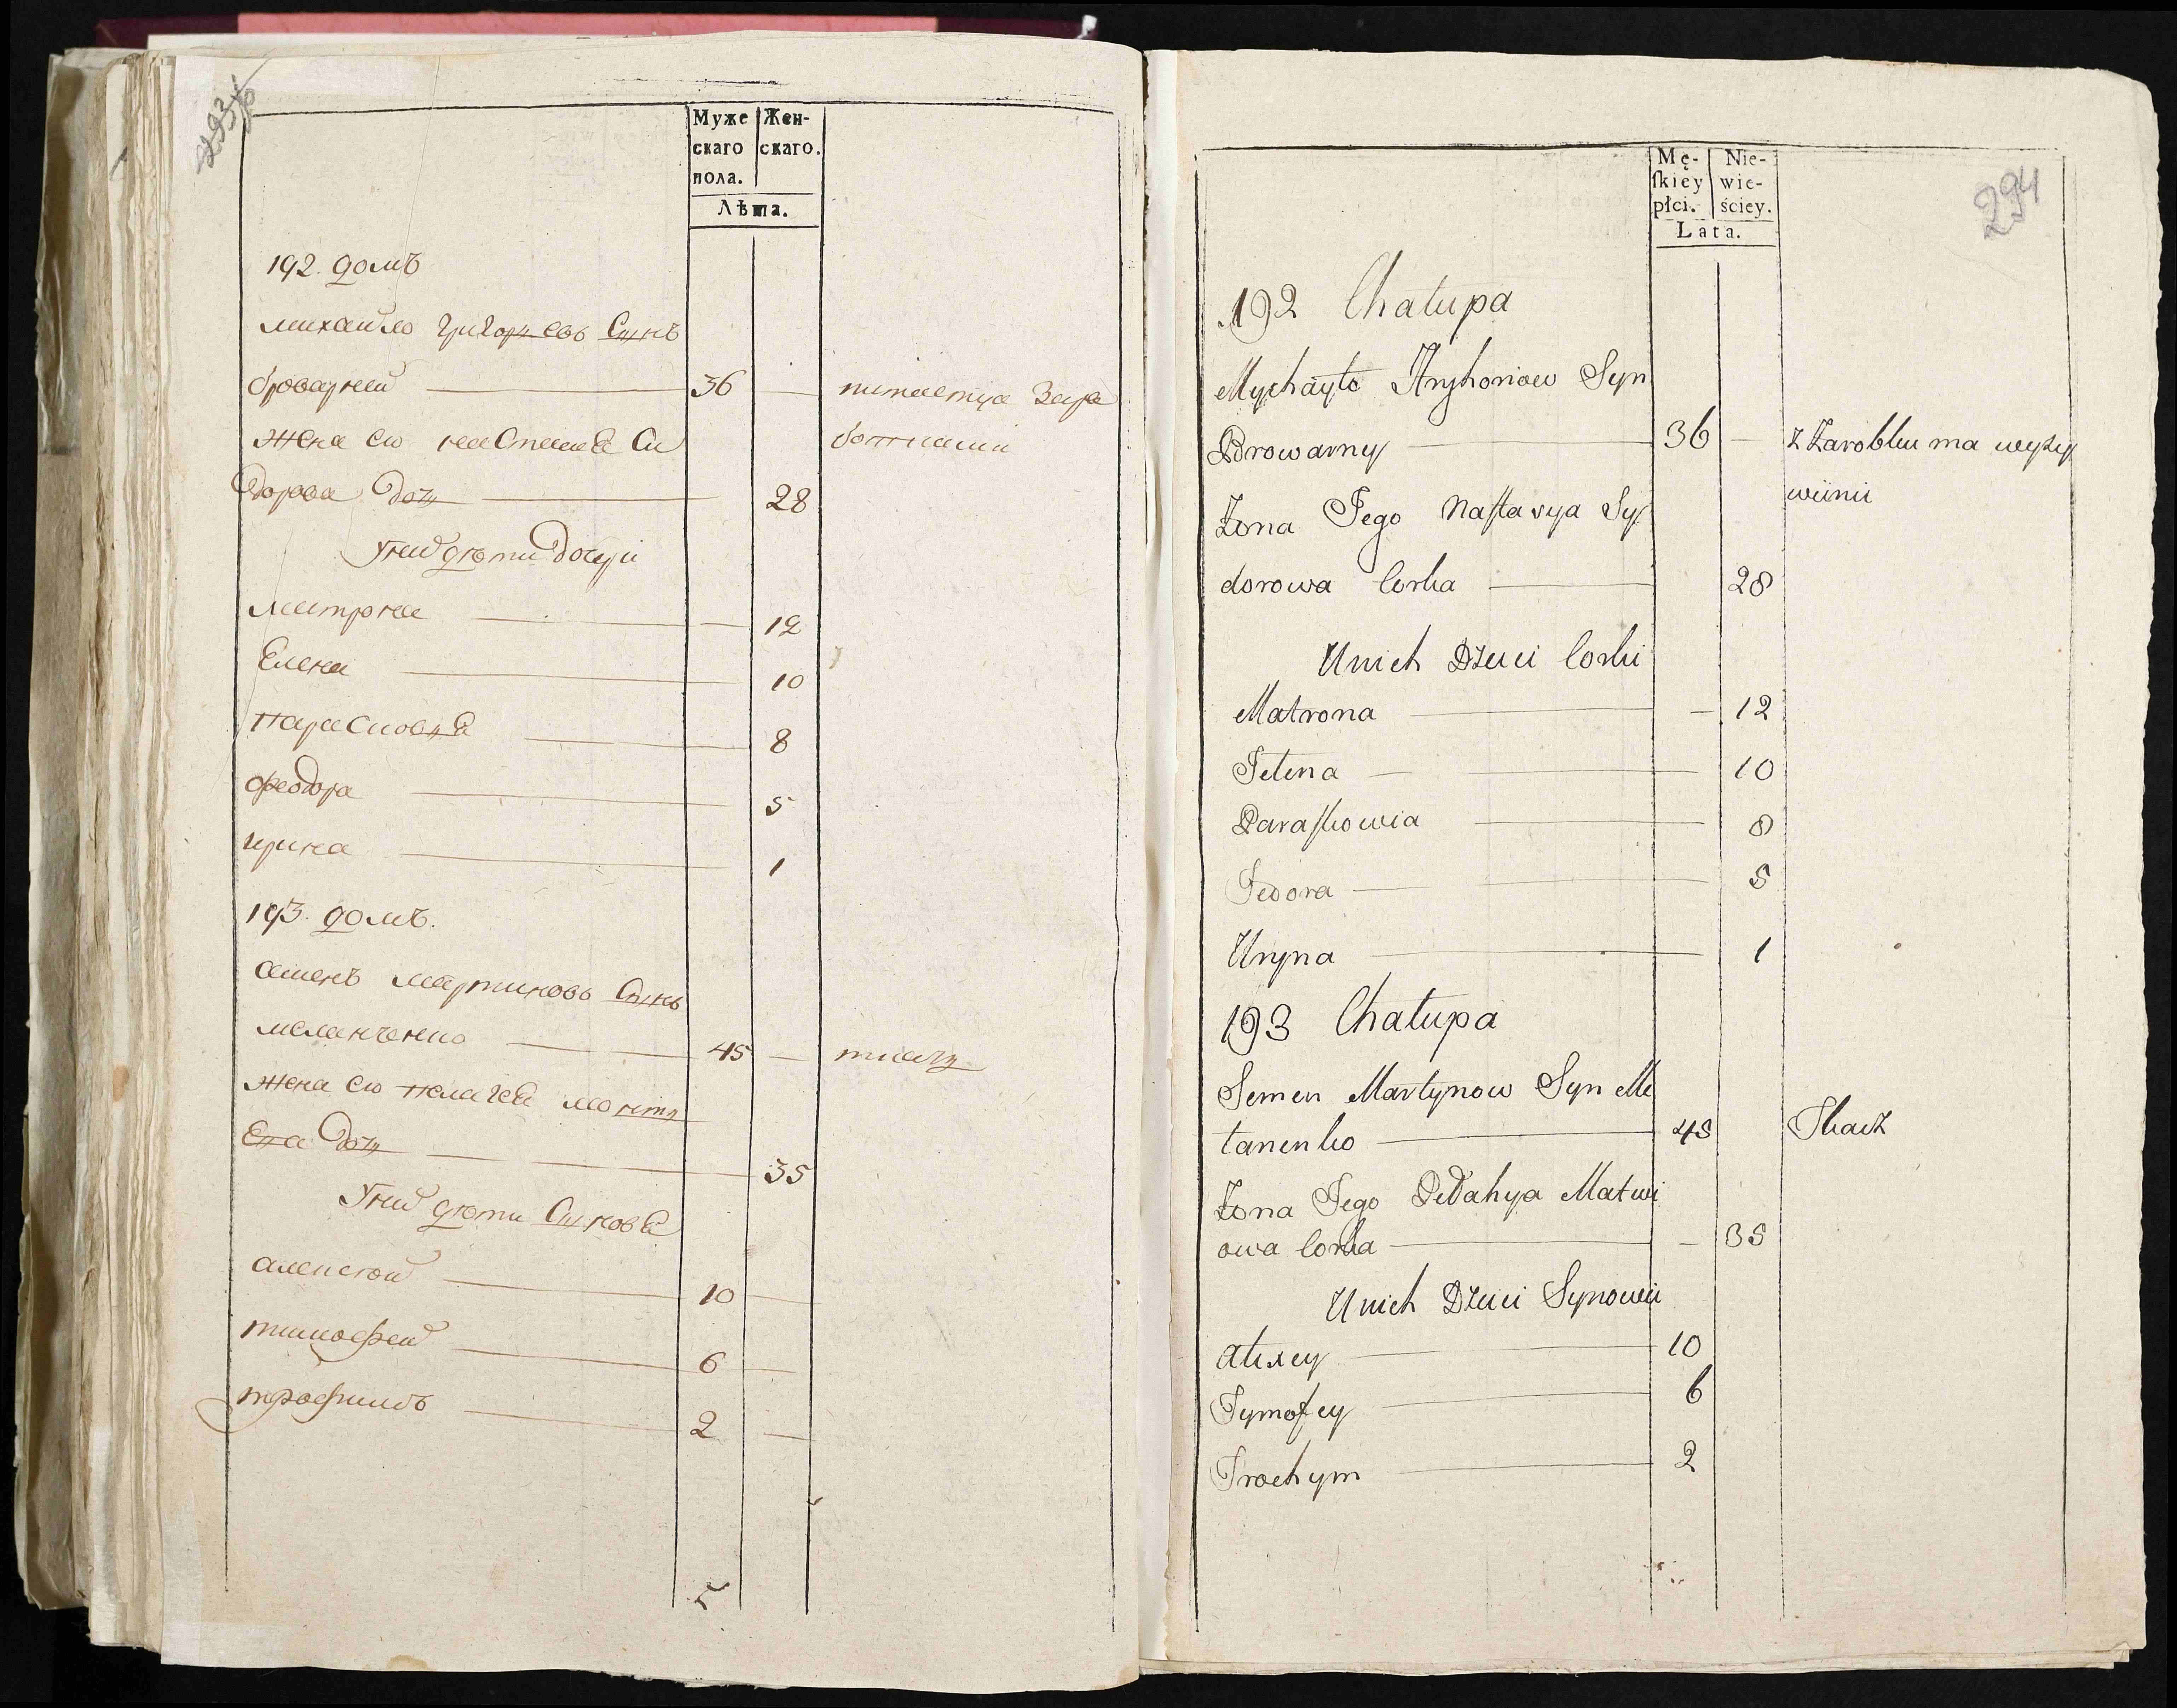 293 об
Муже
скаго
пола.
Жен-
скаго.
Лѣта.
192. домъ
михайло григорьевъ Сынъ
броварней 36 питаетца Зара
жена его настасья Си ботками
дорова дочь 28
У ний дѣти дочери
матрона 12
Елена 10
Парасковья 8
феодора 5
ирина 1
193. домъ.
семенъ мартиновъ Сынъ
меланченко 45 ткачь
жена его пелагея
Ева дочь 35
У ний дѣти Сыновья
алексей 10
тимофей 6
трофимъ 2
294
Mę-
ſkiey
płci.
Nie-
wie-
ściey.
Lata.
192 Chałupa
Mychayło Hryhoriow Syn
Browarny 36 z Zarobku ma wyży
wiinii
Zona Jego Naſtasya Sy
dorowa Corka 28
Unich Dzieci Corki
Matrona 12
Jelena 10
Paraſkowia 8
Fedora 5
Uryna 1
193 Chałupa
Semen Martynow Syn Me
lanenko 45 Tkacz
Zona Jego Pelahya Matwi
owa Corka 35
Unich Dzieci Synowie
Alexey 10
Tymofey 6
Trochym 2